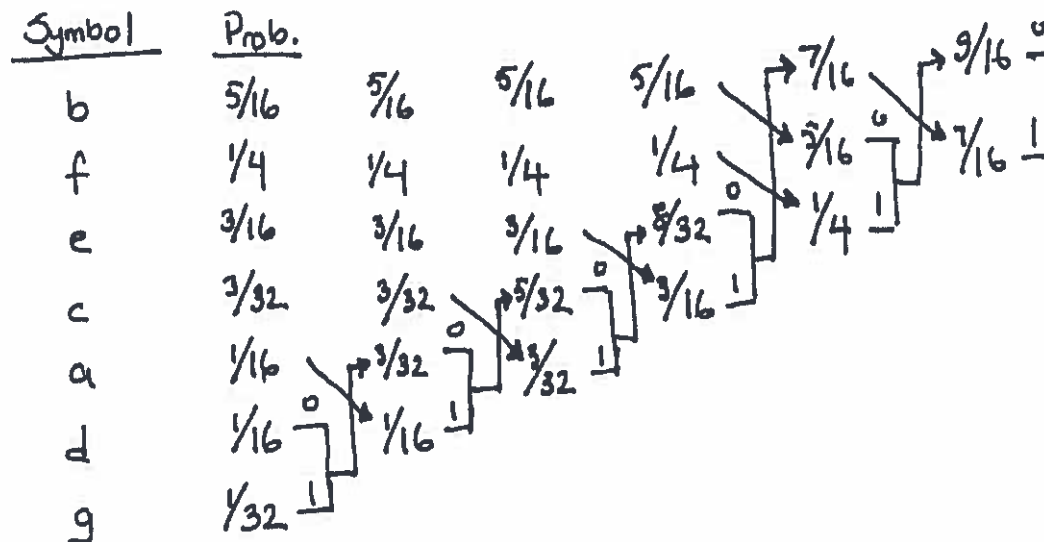 Symbol Prob. 7/16 9/16 0
b 5/16 5/16 5/16 5/16
f 1/4 1/4 1/4 1/4 0 7/16 1
e 3/16 3/16 3/16 8/32 0 1/4 1
c 3/32 3/32 5/32 0 3/16 1
a 1/16 3/32 0 3/32 1
d 1/16 0 1/16 1
g 1/32 1